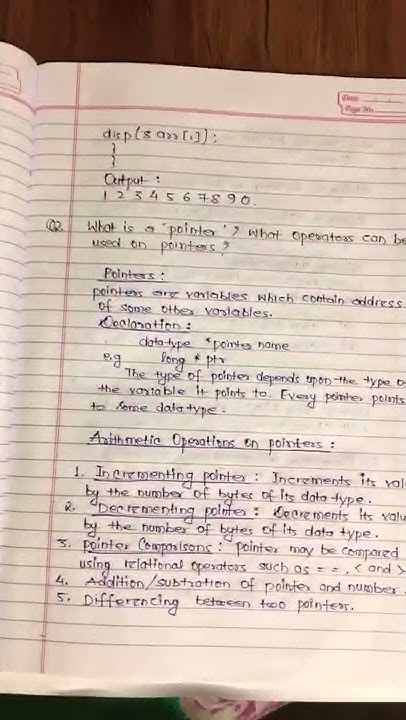 Date
Page No.
disp(& arr[i]);
}
}
Output :
1 2 3 4 5 6 7 8 9 0.
Q2. What is a 'pointer'? What operators can be
used on pointers?
Pointers :
pointers are variables which contain address
of some other variables.
Declaration :
data-type *pointer name
e.g long * ptr
The type of pointer depends upon the type o
the variable it points to. Every pointer points
to some data type.
Arithmetic Operations on pointers :
1. Incrementing pointer : Increments its val
by the number of bytes of its data-type.
2. Decrementing pointer : Decrements its valu
by the number of bytes of its data type.
3. pointer Comparisons : pointer may be compared
using relational operators such as = =, < and >
4. Addition/subtration of pointer and number.
5. Differencing between two pointers.